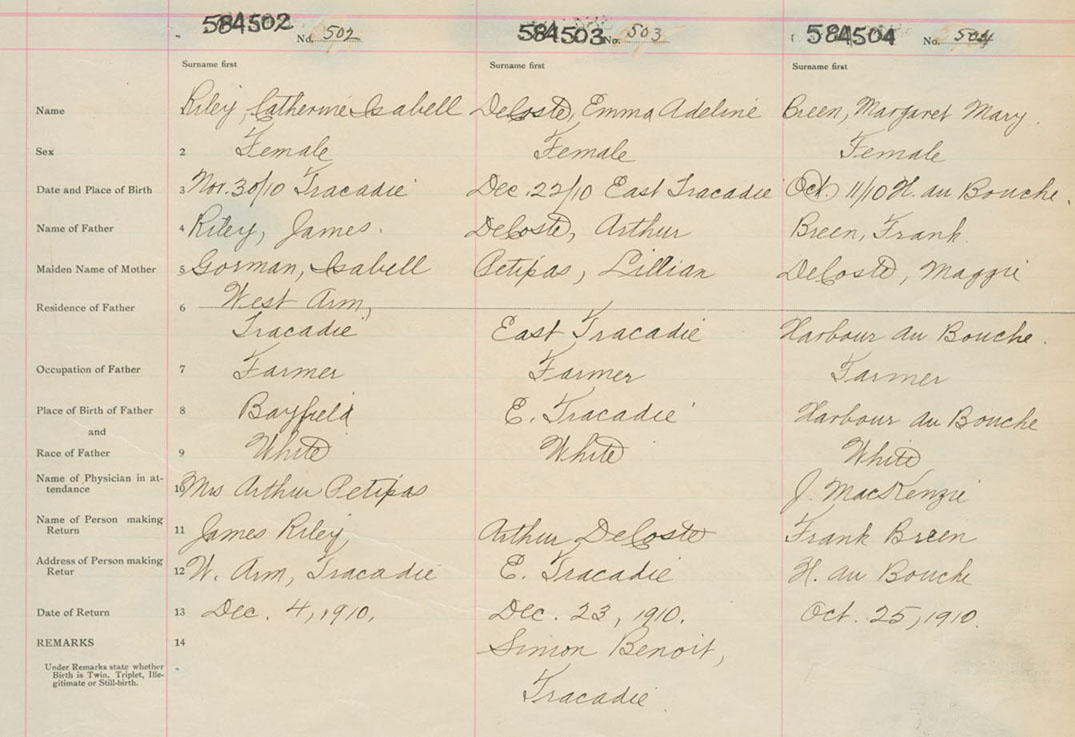 584502 No. 502 584503 No. 503 584504 No. 504
Surname first Surname first Surname first
Name Riley, Catherine Isabell DeCoste, Emma Adeline Breen, Margaret Mary.
Sex 2 Female Female Female
Date and Place of Birth 3 Nov. 30/10 Tracadie Dec. 22/10 East Tracadie Oct. 11/10 H. au Bouche.
Name of Father 4 Riley, James. DeCoste, Arthur Breen, Frank.
Maiden Name of Mother 5 Gorman, Isabell Petipas, Lillian DeCoste, Maggie
Residence of Father 6 West Arm,
Tracadie East Tracadie Harbour au Bouche.
Occupation of Father 7 Farmer Farmer Farmer
Place of Birth of Father 8 Bayfield E. Tracadie Harbour au Bouche
and
Race of Father 9 White White White
Name of Physician in at-
tendance 10 Mrs Arthur Petipas J. MacKenzie
Name of Person making
Return 11 James Riley Arthur DeCoste Frank Breen
Address of Person making
Retur 12 W. Arm, Tracadie E. Tracadie H. au Bouche
Date of Return 13 Dec. 4, 1910. Dec. 23, 1910. Oct. 25, 1910.
REMARKS 14 Simon Benoit,
Under Remarks state whether
Birth is Twin, Triplet, Ille-
gitimate or Still-birth.
Tracadie